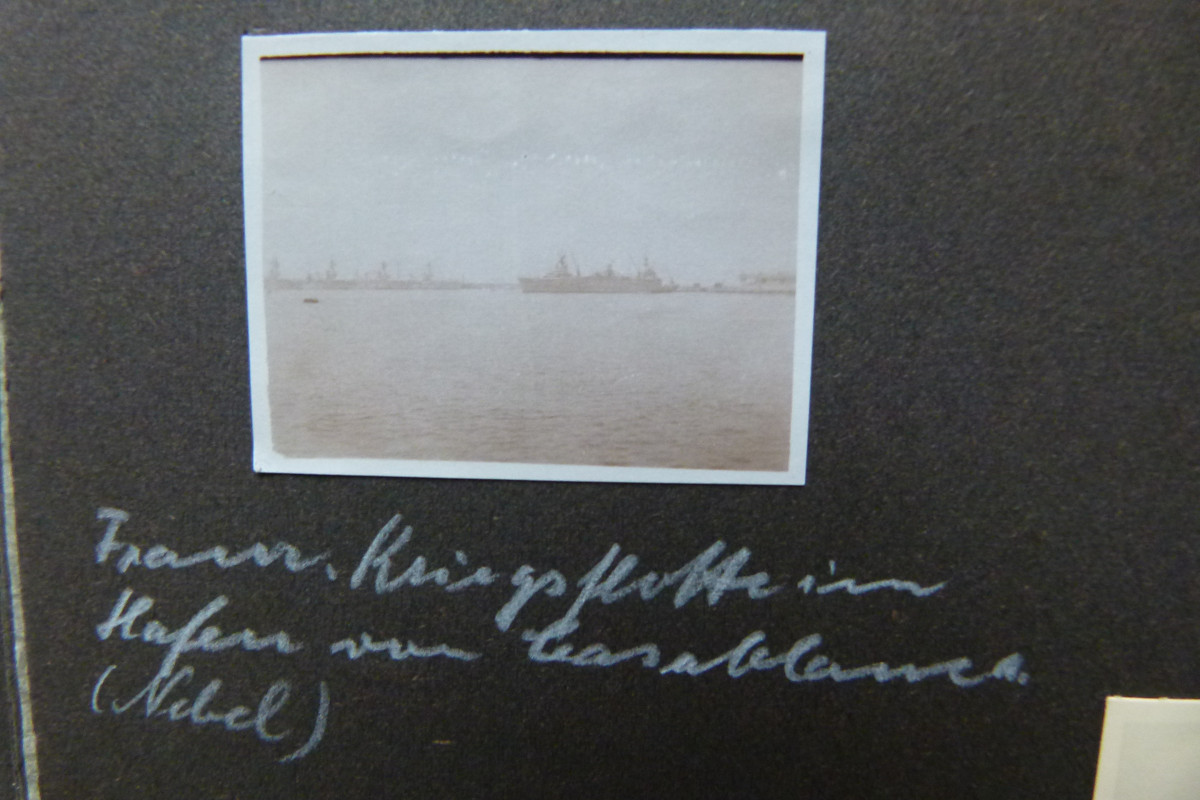 Franz. Kriegsflotte im
Hafen von Casablanca.
(Nebel)